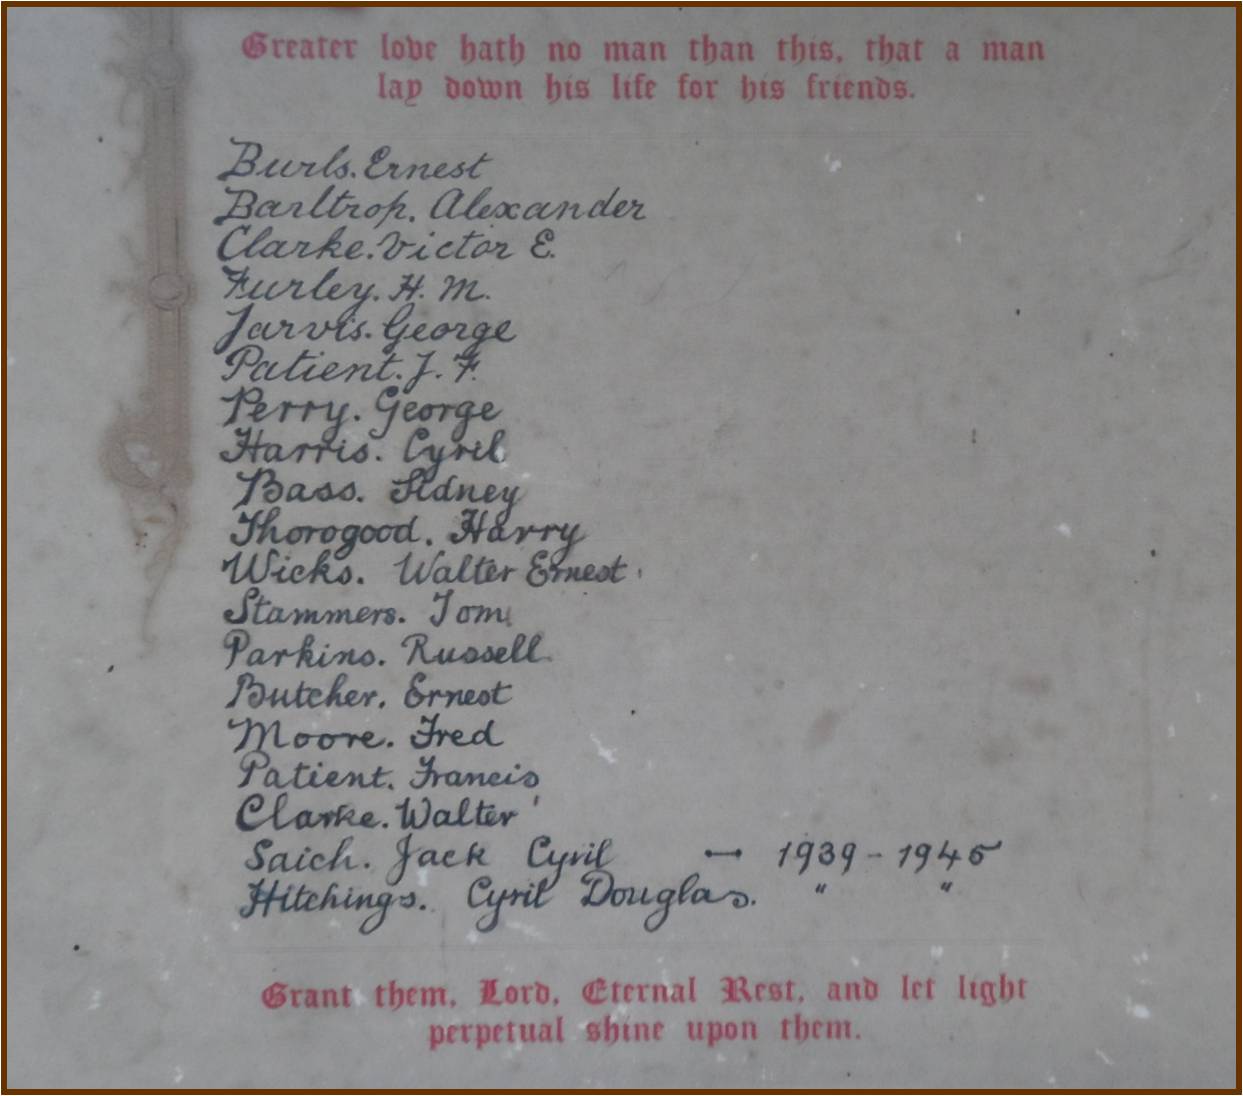 Greater love hath no man than this, that a man
lay down his life for his friends.
Burls. Ernest
Barltrop. Alexander
Clarke. Victor E.
Furley. H. M.
Jarvis. George
Patient. J. F.
Perry. George
Harris. Cyril
Bass. Sidney
Thorogood. Harry
Wicks. Walter Ernest.
Stammers. Tom.
Parkins. Russell.
Butcher. Ernest
Moore. Fred
Patient. Francis
Clarke. Walter
Saich. Jack Cyril — 1939 - 1945
Hitchings. Cyril Douglas. " "
Grant them, Lord, Eternal Rest, and let light
perpetual shine upon them.